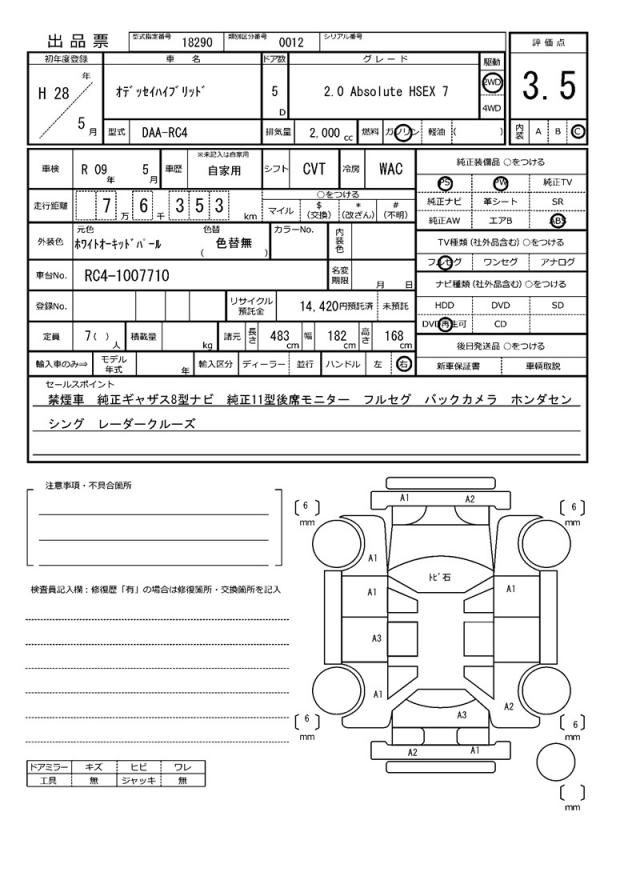 出品票 型式指定番号 18290 類別区分番号 0012 シリアル番号
評価点
3.5
内装 A B C
初年度登録 車名 ドア数 グレード 駆動
H 28 年 5 月
オデッセイハイブリッド 5 D 2.0 Absolute HSEX 7 2WD
4WD
型式 DAA-RC4 排気量 2,000 cc 燃料 ガソリン 軽油 ( )
車検 R 09 年 5 月 車歴 ※未記入は自家用 自家用 シフト CVT 冷房 WAC
走行距離 7 万 6 千 3 5 3 km
○をつける
マイル $ (交換) * (改ざん) # (不明)
外装色 元色 ホワイトオーキッドパール 色替 色替無 ( ) カラーNo. 内装色
車台No. RC4-1007710 名変期限 月 日
登録No. リサイクル預託金 14,420円預託済 未預託
定員 7( ) 人 積載量 kg 諸元 長さ 483 cm 幅 182 cm 高さ 168 cm
輸入車のみ⇒ モデル年式 年 輸入区分 ディーラー 並行 ハンドル 左 右
純正装備品 ○をつける
PS PW 純正TV
純正ナビ 革シート SR
純正AW エアB ABS
TV種類 (社外品含む) ○をつける
フルセグ ワンセグ アナログ
ナビ種類 (社外品含む) ○をつける
HDD DVD SD
DVD再生可 CD
後日発送品 ○をつける
新車保証書 車輌取説
セールスポイント
禁煙車 純正ギャザス8型ナビ 純正11型後席モニター フルセグ バックカメラ ホンダセン
シング レーダークルーズ
注意事項・不具合箇所
検査員記入欄：修復歴「有」の場合は修復箇所・交換箇所を記入
ドアミラー キズ ヒビ ワレ
工具 無 ジャッキ 無
A1 A2
[ 6 ] mm [ 6 ] mm
A1
トビ石
A1 A1
A3
A1 A2
A3
[ 6 ] mm [ 6 ] mm
A2 A1
[ ] mm